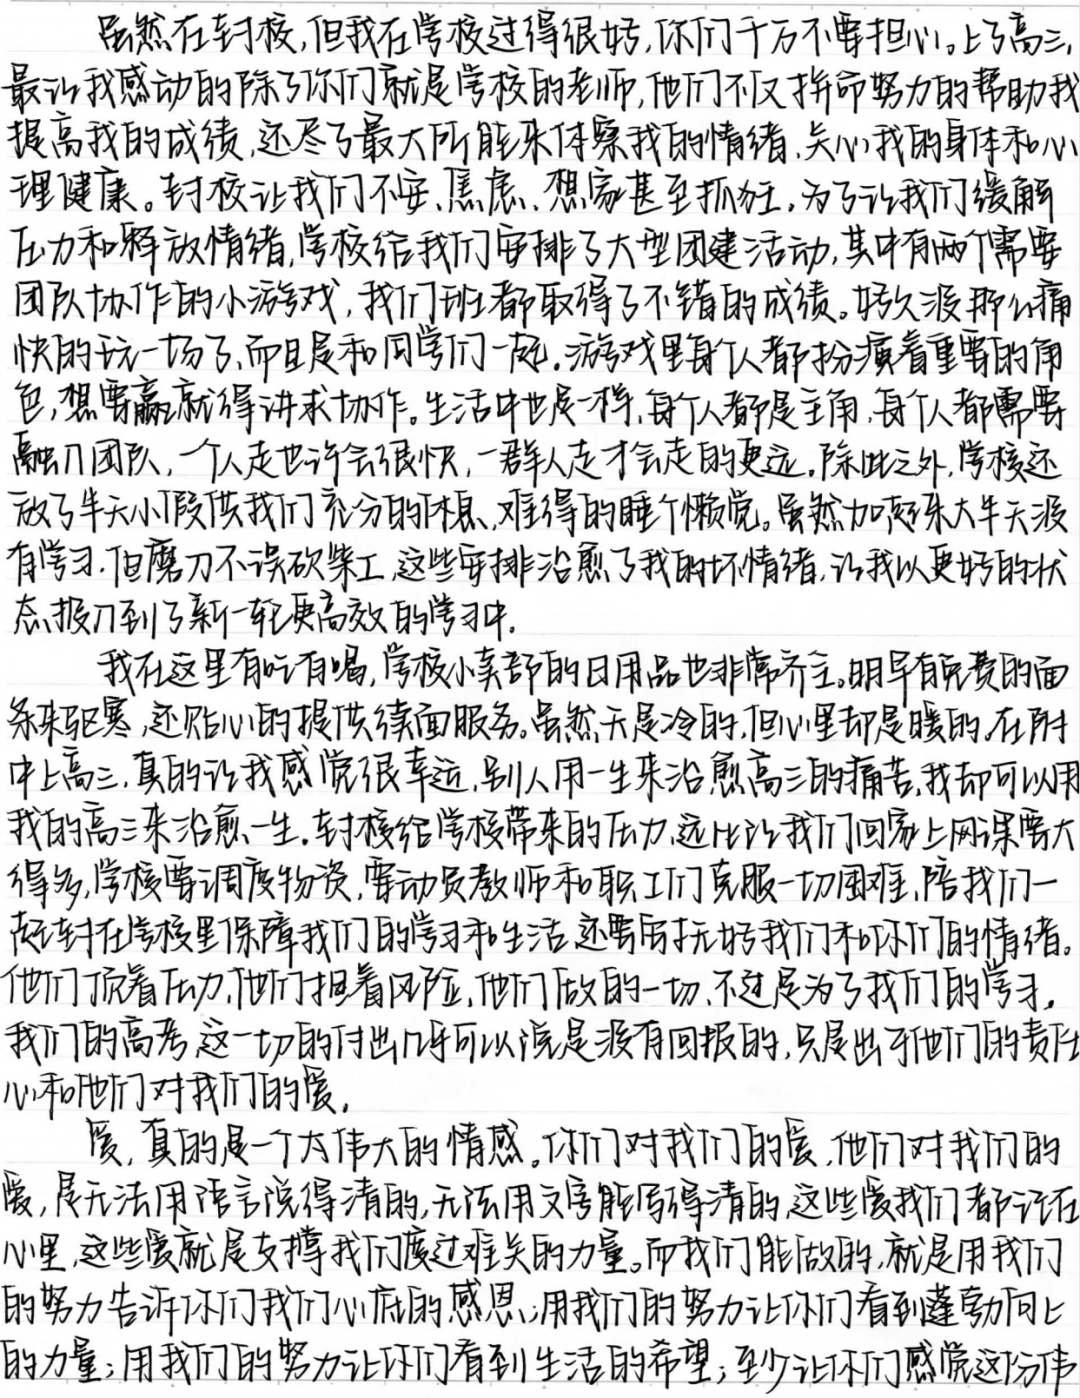 虽然在封校,但我在学校过得很好,你们千万不要担心。上了高三,
最让我感动的除了你们就是学校的老师,他们不仅拼命努力的帮助我
提高我的成绩,还尽了最大所能来体察我的情绪,关心我的身体和心
理健康。封校让我们不安、焦虑、想家甚至抓狂,为了让我们缓解
压力和释放情绪,学校给我们安排了大型团建活动,其中有两个需要
团队协作的小游戏,我们班都取得了不错的成绩。好久没那么痛
快的玩一场了,而且是和同学们一起。游戏里每个人都扮演着重要的角
色,想要赢就得讲求协作。生活中也是一样,每个人都是主角,每个人都需要
融入团队,一个人走也许会很快,一群人走才会走的更远。除此之外,学校还
放了半天小假供我们充分的休息、难得的睡个懒觉。虽然加起来大半天没
有学习,但磨刀不误砍柴工,这些安排治愈了我的坏情绪,让我以更好的状
态投入到了新一轮更高效的学习中。
我在这里有吃有喝,学校小卖部的日用品也非常齐全。明早有免费的面
条来驱寒,还贴心的提供续面服务。虽然天是冷的,但心里却是暖的。在附
中上高三,真的让我感觉很幸运,别人用一生来治愈高三的痛苦,我却可以用
我的高三来治愈一生。封校给学校带来的压力,远比让我们回家上网课要大
得多,学校要调度物资,要动员教师和职工们克服一切困难,陪我们一
起封在学校里保障我们的学习和生活,还要安抚好我们和你们的情绪。
他们顶着压力,他们担着风险,他们做的一切,不过是为了我们的学习,
我们的高考,这一切的付出几乎可以说是没有回报的,只是出于他们的责任
心和他们对我们的爱。
爱,真的是一个太伟大的情感。你们对我们的爱,他们对我们的
爱,是无法用语言说得清的,无法用文字能写得清的,这些爱我们都记在
心里,这些爱就是支撑我们度过难关的力量。而我们能做的,就是用我们
的努力告诉你们我们心底的感恩;用我们的努力让你们看到蓬勃向上
的力量;用我们的努力让你们看到生活的希望;至少让你们感觉这份伟